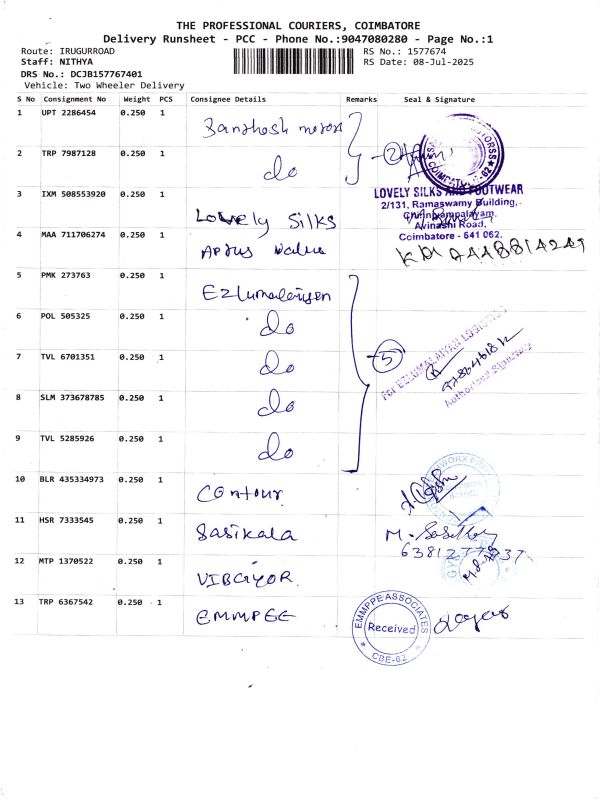 THE PROFESSIONAL COURIERS, COIMBATORE
Delivery Runsheet - PCC - Phone No.:9047080280 - Page No.:1
Route: IRUGURROAD
Staff: NITHYA
DRS No.: DCJB157767401
Vehicle: Two Wheeler Delivery
RS No.: 1577674
RS Date: 08-Jul-2025
S No Consignment No Weight PCS Consignee Details Remarks Seal & Signature
1 UPT 2286454 0.250 1
2 TRP 7987128 0.250 1 do
COIMBATORE
3 IXM 508553920 0.250 1 Lovely Silks
LOVELY SILKS AND FOOTWEAR
2/131, Ramaswamy Building,
Chinniyampalayam,
Avinashi Road,
Coimbatore - 641 062.
4 MAA 711706274 0.250 1 Aptus Value
5 PMK 273763 0.250 1
6 POL 505325 0.250 1 do
7 TVL 6701351 0.250 1 do 5
For EZLUMALAIYAN LOGISTICS
Authorised Signatory
8 SLM 373678785 0.250 1 do
9 TVL 5285926 0.250 1 do
10 BLR 435334973 0.250 1 Contour
11 HSR 7333545 0.250 1 Sasikala
12 MTP 1370522 0.250 1 VIBGYOR
13 TRP 6367542 0.250 1 EMMPEE
EMMPPE ASSOCIATES
Received
CBE-62